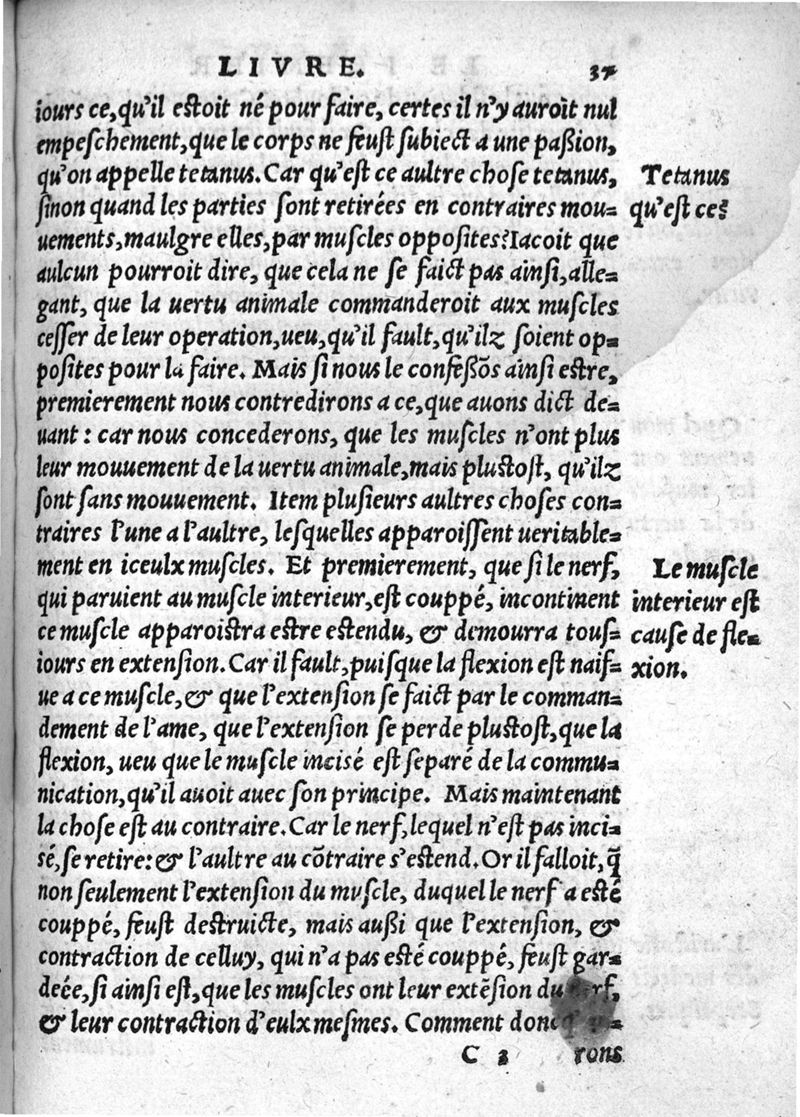 LIVRE. 37
iours ce, qu'il estoit né pour faire, certes il n'y auroit nul
empeſchement, que le corps ne feuſt ſubiect a une paßion,
qu'on appelle tetanus. Car qu'eſt ce aultre choſe tetanus,
ſinon quand les parties ſont retirées en contraires mou-
uements, maulgre elles, par muſcles oppoſites? Iacoit que
aulcun pourroit dire, que cela ne ſe faict pas ainſi, alle-
gant, que la uertu animale commanderoit aux muſcles
ceſſer de leur operation, ueu, qu'il fault, qu'ilz ſoient op-
poſites pour la faire. Mais ſi nous le confeßõs ainſi eſtre,
premierement nous contredirons a ce, que auons dict de-
uant : car nous concederons, que les muſcles n'ont plus
leur mouuement de la uertu animale, mais pluſtoſt, qu'ilz
ſont ſans mouuement. Item pluſieurs aultres choſes con-
traires l'une a l'aultre, leſquelles apparoiſſent ueritable-
ment en iceulx muſcles. Et premierement, que ſi le nerf,
qui paruient au muſcle interieur, eſt couppé, incontinent
ce muſcle apparoiſtra eſtre eſtendu, & demourra touſ-
iours en extenſion. Car il fault, puiſque la flexion eſt naif-
ue a ce muſcle, & que l'extenſion ſe faict par le comman-
dement de l'ame, que l'extenſion ſe perde pluſtoſt, que la
flexion, ueu que le muſcle inciſé eſt ſeparé de la commu-
nication, qu'il auoit auec ſon principe. Mais maintenant
la choſe eſt au contraire. Car le nerf, lequel n'eſt pas inci-
ſé, ſe retire: & l'aultre au cõtraire s'eſtend. Or il falloit, q̃
non ſeulement l'extenſion du muſcle, duquel le nerf a eſté
couppé, feuſt deſtruicte, mais außi que l'extenſion, &
contraction de celluy, qui n'a pas eſté couppé, feuſt gar-
deée, ſi ainſi eſt, que les muſcles ont leur extẽſion du nerf,
& leur contraction d'eulx meſmes. Comment donc
C 3 rons
Tetanus
qu'eſt ce?
Le muſcle
interieur eſt
cauſe de fle-
xion.